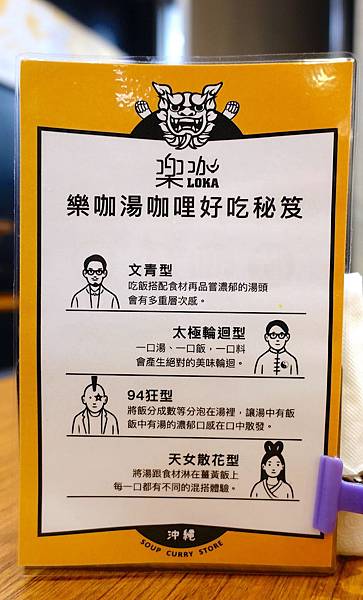 樂咖
LOKA
樂咖湯咖哩好吃秘笈
文青型
吃飯搭配食材再品嘗濃郁的湯頭
會有多重層次感。
太極輪迴型
一口湯、一口飯,一口料
會產生絕對的美味輪迴。
94狂型
將飯分成數等分泡在湯裡,讓湯中有飯
飯中有湯的濃郁口感在口中散發。
天女散花型
將湯跟食材淋在薑黃飯上
每一口都有不同的混搭體驗。
沖繩
SOUP CURRY STORE